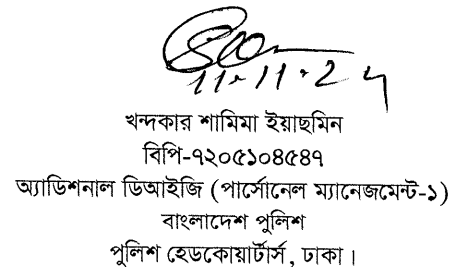 11.11.24
খন্দকার শামিমা ইয়াছমিন
বিপি-৭২০৫১০৪৫৪৭
অ্যাডিশনাল ডিআইজি (পার্সোনেল ম্যানেজমেন্ট-১)
বাংলাদেশ পুলিশ
পুলিশ হেডকোয়ার্টার্স, ঢাকা।